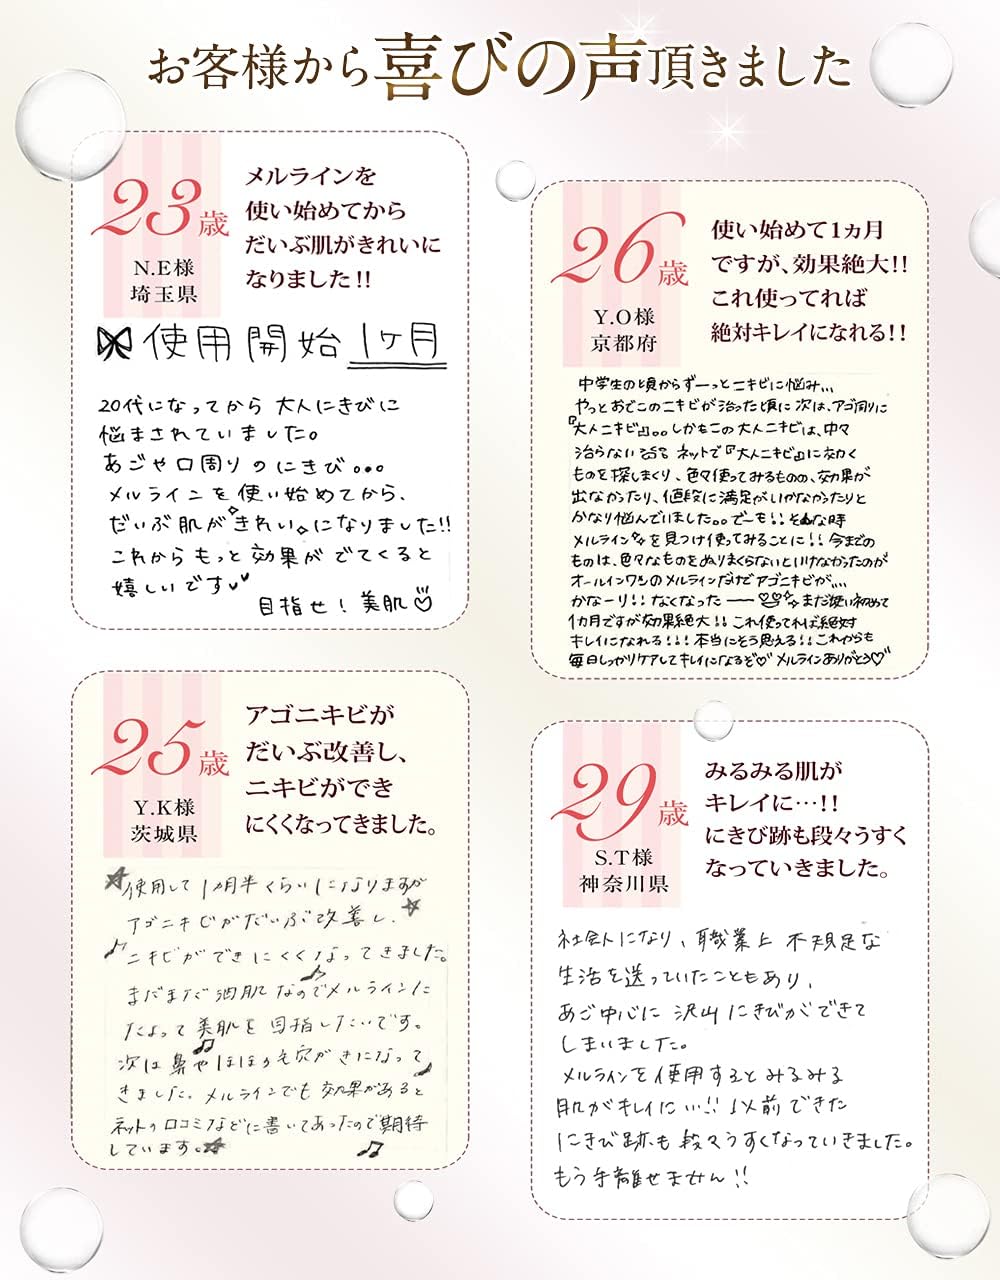 お客様から喜びの声頂きました
23歳
N.E様
埼玉県
メルラインを
使い始めてから
だいぶ肌がきれいに
なりました!!
使用開始 1ヶ月
20代になってから 大人にきびに
悩まされていました。
あごや口周りのにきび...
メルラインを使い始めてから、
だいぶ肌がきれいになりました!!
これからもっと効果がでてくると
嬉しいです
目指せ!美肌
26歳
Y.O様
京都府
使い始めて1ヵ月
ですが、効果絶大!!
これ使ってれば
絶対キレイになれる!!
中学生の頃からずーっとニキビに悩み...
やっとおでこのニキビが治った頃に次は、アゴ周りに
『大人ニキビ』。。しかもこの大人ニキビは、中々
治らない ネットで『大人ニキビ』に効く
ものを探しまくり、色々使ってみるものの、効果が
出なかったり、値段に満足がいかなかったりと
かなり悩んでいました。。でーも!!そんな時
メルラインを見つけ使ってみることに!!今までの
ものは、色々なものをぬりまくらないといけなかったのが
オールインワンのメルラインだけでアゴニキビが...
かなーり!!なくなったーー まだ使い初めて
1カ月ですが効果絶大!!これ使ってれば絶対
キレイになれる!!!本当にそう思える!!これからも
毎日しっかりケアしてキレイになるぞ♡メルラインありがとう♡
25歳
Y.K様
茨城県
アゴニキビが
だいぶ改善し、
ニキビができ
にくくなってきました。
使用して1カ月半くらいになりますが
アゴニキビがだいぶ改善し、
ニキビができにくくなってきました。
まだまだ油肌なのでメルラインに
たよって美肌を目指したいです。
次は鼻やほほの毛穴がきになって
きました。メルラインでも効果があると
ネットの口コミなどに書いてあったので期待
しています。
29歳
S.T様
神奈川県
みるみる肌が
キレイに…!!
にきび跡も段々うすく
なっていきました。
社会人になり、職業上不規足な
生活を送っていたこともあり、
あご中心に沢山にきびができて
しまいました。
メルラインを使用するとみるみる
肌がキレイに...!!以前できた
にきび跡も段々うすくなっていきました。
もう手離せません!!